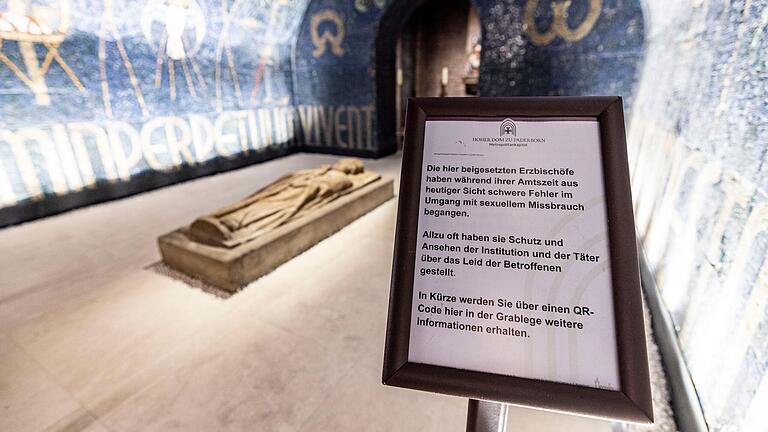 IN IMPERPETUUM VIVENT
HOHER DOM ZU PADERBORN
Metropolitankapitel
Die hier beigesetzten Erzbischöfe
haben während ihrer Amtszeit aus
heutiger Sicht schwere Fehler im
Umgang mit sexuellem Missbrauch
begangen.
Allzu oft haben sie Schutz und
Ansehen der Institution und der Täter
über das Leid der Betroffenen
gestellt.
In Kürze werden Sie über einen QR-
Code hier in der Grablege weitere
Informationen erhalten.